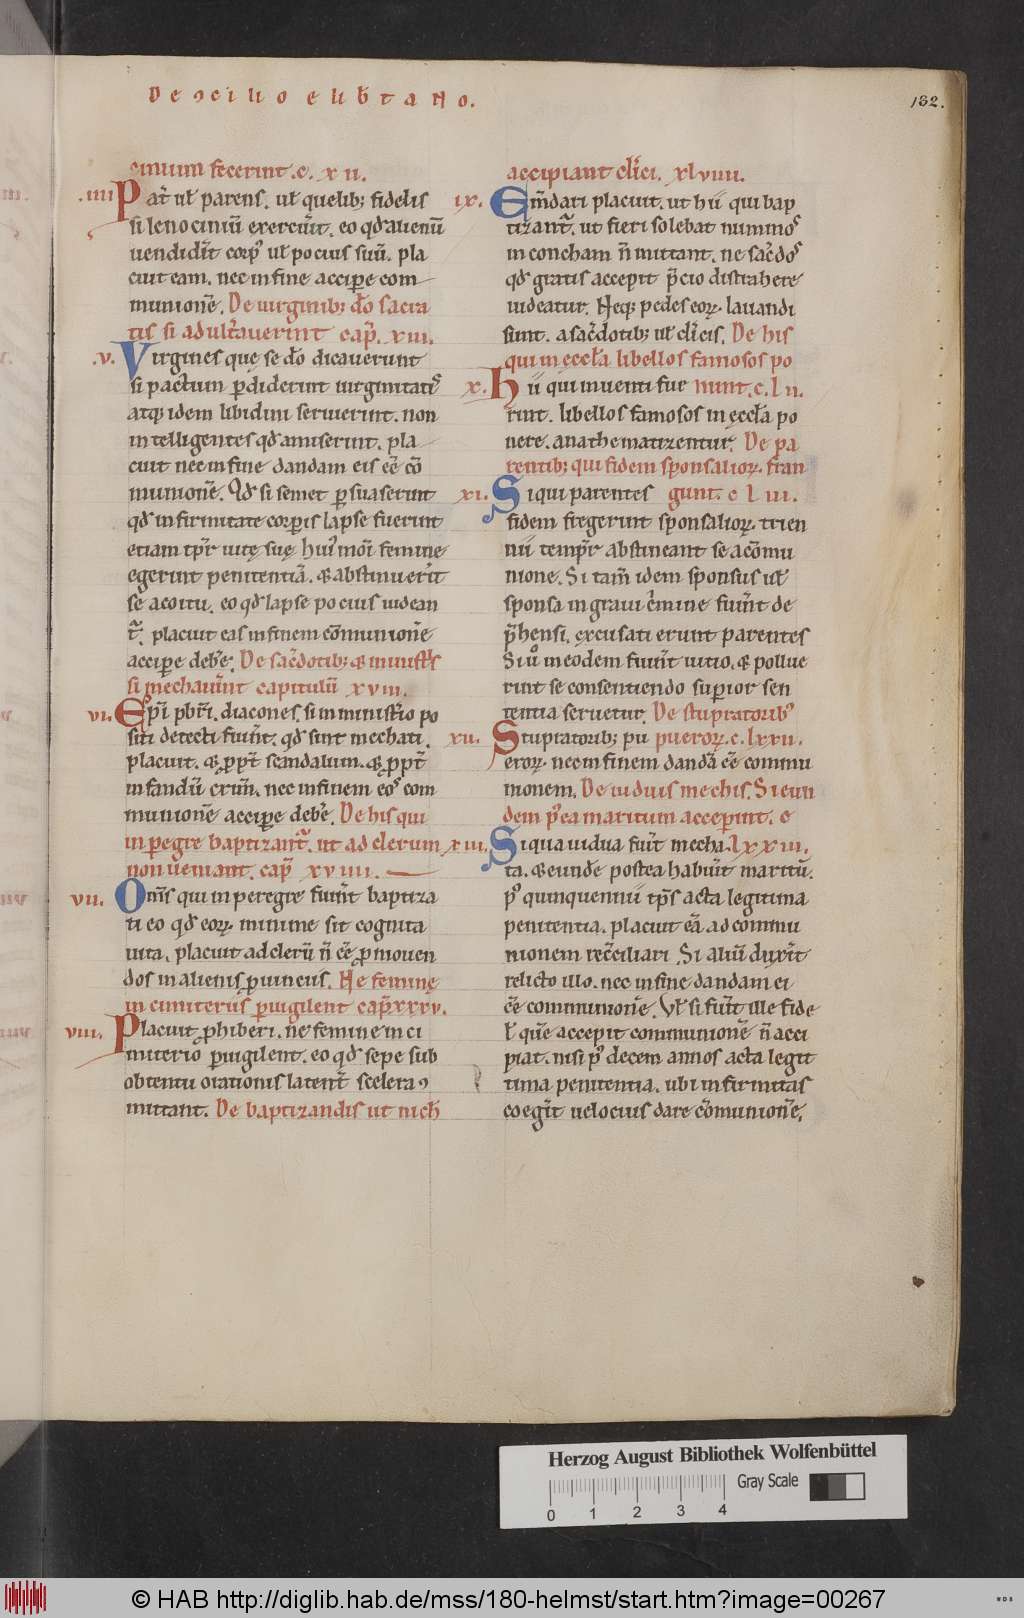 De ↄcilio elib̄tano.
182.
cinium fecerint .c. xii.
.iiii Pat̄ ul̄ parens. ul̄ quelib; fidelis
si lenociniū exercuīt. eo qd̄ alienū
uendidīt corpꝰ ul̄ pocius suū. pla
cuit eam. nec in fine accipe com
munionē. De uirginib; dō sacra
tis si adult̄auerint cap̄. xiii.
.v. Virgines quę se dō dicauerunt
si pactum ꝑdiderint uirginitatis
atq; idem libidini seruierint. non
intelligentes qd̄ amiserint. pla
cuit nec in fine dandam eis eē cō
munionē. Qd̄ si semet ꝑsuaserint
qd̄ infirmitate corporis lapse fuerint
etiam tp̄r uitę suę huiꝰmōi femine
egerint penitentiā. & abstinuerīt
se a coitu. eo qd̄ lapse pocius uidean
t᷑. placuit eas in finem cōmunionē
accipe deb̄e. De sac̄dotib; & minist̄s
si mechauīnt capitulū xviii.
vi. Ep̄i pb̄ri. diacones. si in ministio po
siti detecti fuīnt. qd̄ sint mechati.
placuit. & ꝓpt̄ scandalum. & ꝓpt̄
infandū crim̄. nec in finem eos com
munionē accipe deb̄e. De his qui
in pegre baptizant᷑. ut ad clerum
non ueniant. cap̄ xviiii.
vii. Om̄s qui in peregre fuīnt baptiza
ti eo qd̄ eoꝝ minime sit cognita
uita. placuit ad clerū n̄ eē ꝓmouen
dos in alienis ꝓuinciis. Ne feminę
in cimiteriis ꝑuigilent cap̄xxxv.
viii. Placuit ꝓhiberi. ne femine in ci
miterio ꝑuigilent. eo qd̄ sepe sub
obtentu orationis latent̄ scelera ↄ
mittant. De baptizandis ut nich̄
accipiant cl̄ici. xlviiii.
ix. Em̄dari placuit. ut hii qui bap
tizant᷑. ut fieri solebat nummos
in concham n̄ mittant. ne sac̄dos
qd̄ gratis accepit p̄cio distrahere
uideatur. Neq; pedes eoꝝ lauandi
sunt. a sac̄dotib; ul̄ cl̄icis. De his
qui in ęccl̄a libellos famosos po
x. Hii qui inuenti fue nunt. c. lii.
rint. libellos famosos in ęccl̄a po
nere. anathematizentur. De pa
rentib; qui fidem sponsalioꝝ. fran
xi. Si qui parentes gunt. c liii.
fidem fregerint sponsalioꝝ. trien
nii temp̄r abstineant se a cōmu
nione. Si tam̄ idem sponsus ul̄
sponsa in graui c̄mine fuīnt de
p̄hensi. excusati erunt parentes
Si u͛o in eodem fuīnt uitio. & pollue
rint se consentiendo superior sen
tentia seruetur. De stupratoribꝰ
xii. Stupratorib; pu pueroꝝ. c. lxxii.
eroꝝ. nec in finem dandā eē commu
nionem. De uiduis mechis. Si eun
dem p̄ea maritum acceperint. c
xiii. Si qua uidua fuīt mecha lxxiii.
ta. & eunde postea habuīt maritū.
pꝰ quinquennii tp̄s acta legitima
penitentia. placuit eā ad commu
nionem rec̄ciliari. Si aliū duxīt
relicto illo. nec in fine dandam ei
eē communionē. Vl̄ si fuīt ille fide
l̄ quē accepit communionē n̄ acci
piat. nisi pꝰ decem annos acta legit
tima penitentia. ubi infirmitas
coegīt uelocius dare cōmunionē.
Herzog August Bibliothek Wolfenbüttel
Gray Scale
0 1 2 3 4
© HAB http://diglib.hab.de/mss/180-helmst/start.htm?image=00267